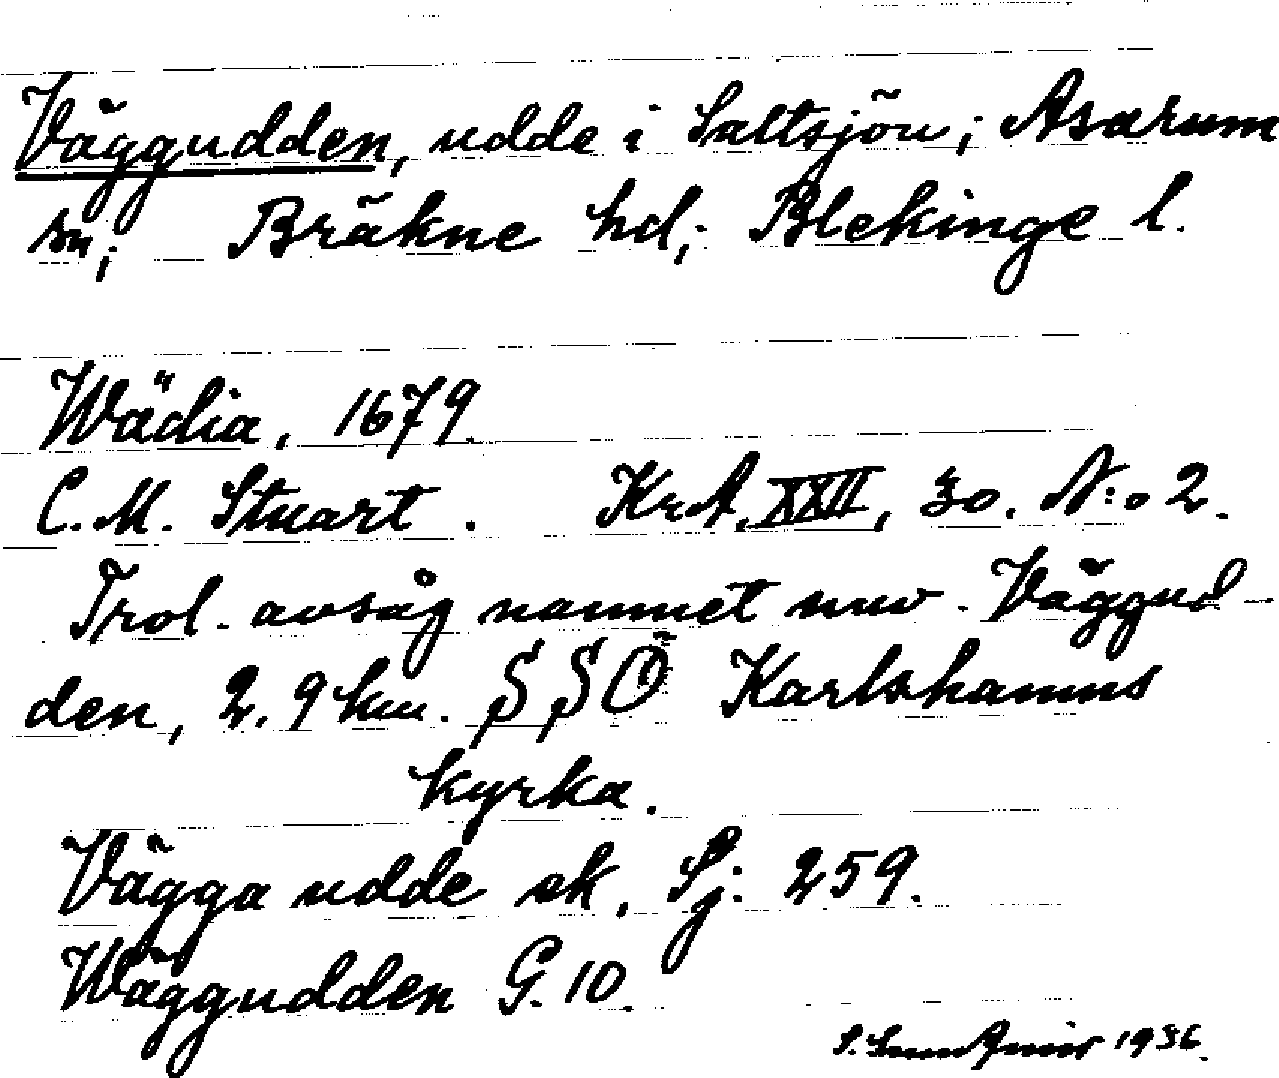 Väggudden, udde i Saltsjön; Asarum
sn; Bräkne hd; Blekinge l.
Wädia, 1679.
C. M. Stuart. KrA, XXII, 30. N:o 2.
Trol. avsåg namnet nuv. Väggud-
den, 2.9 km. SSÖ Karlshamns
kyrka.
Vägga udde ek. Sj: 259.
Wäggudden G. 10.
S. 1936.